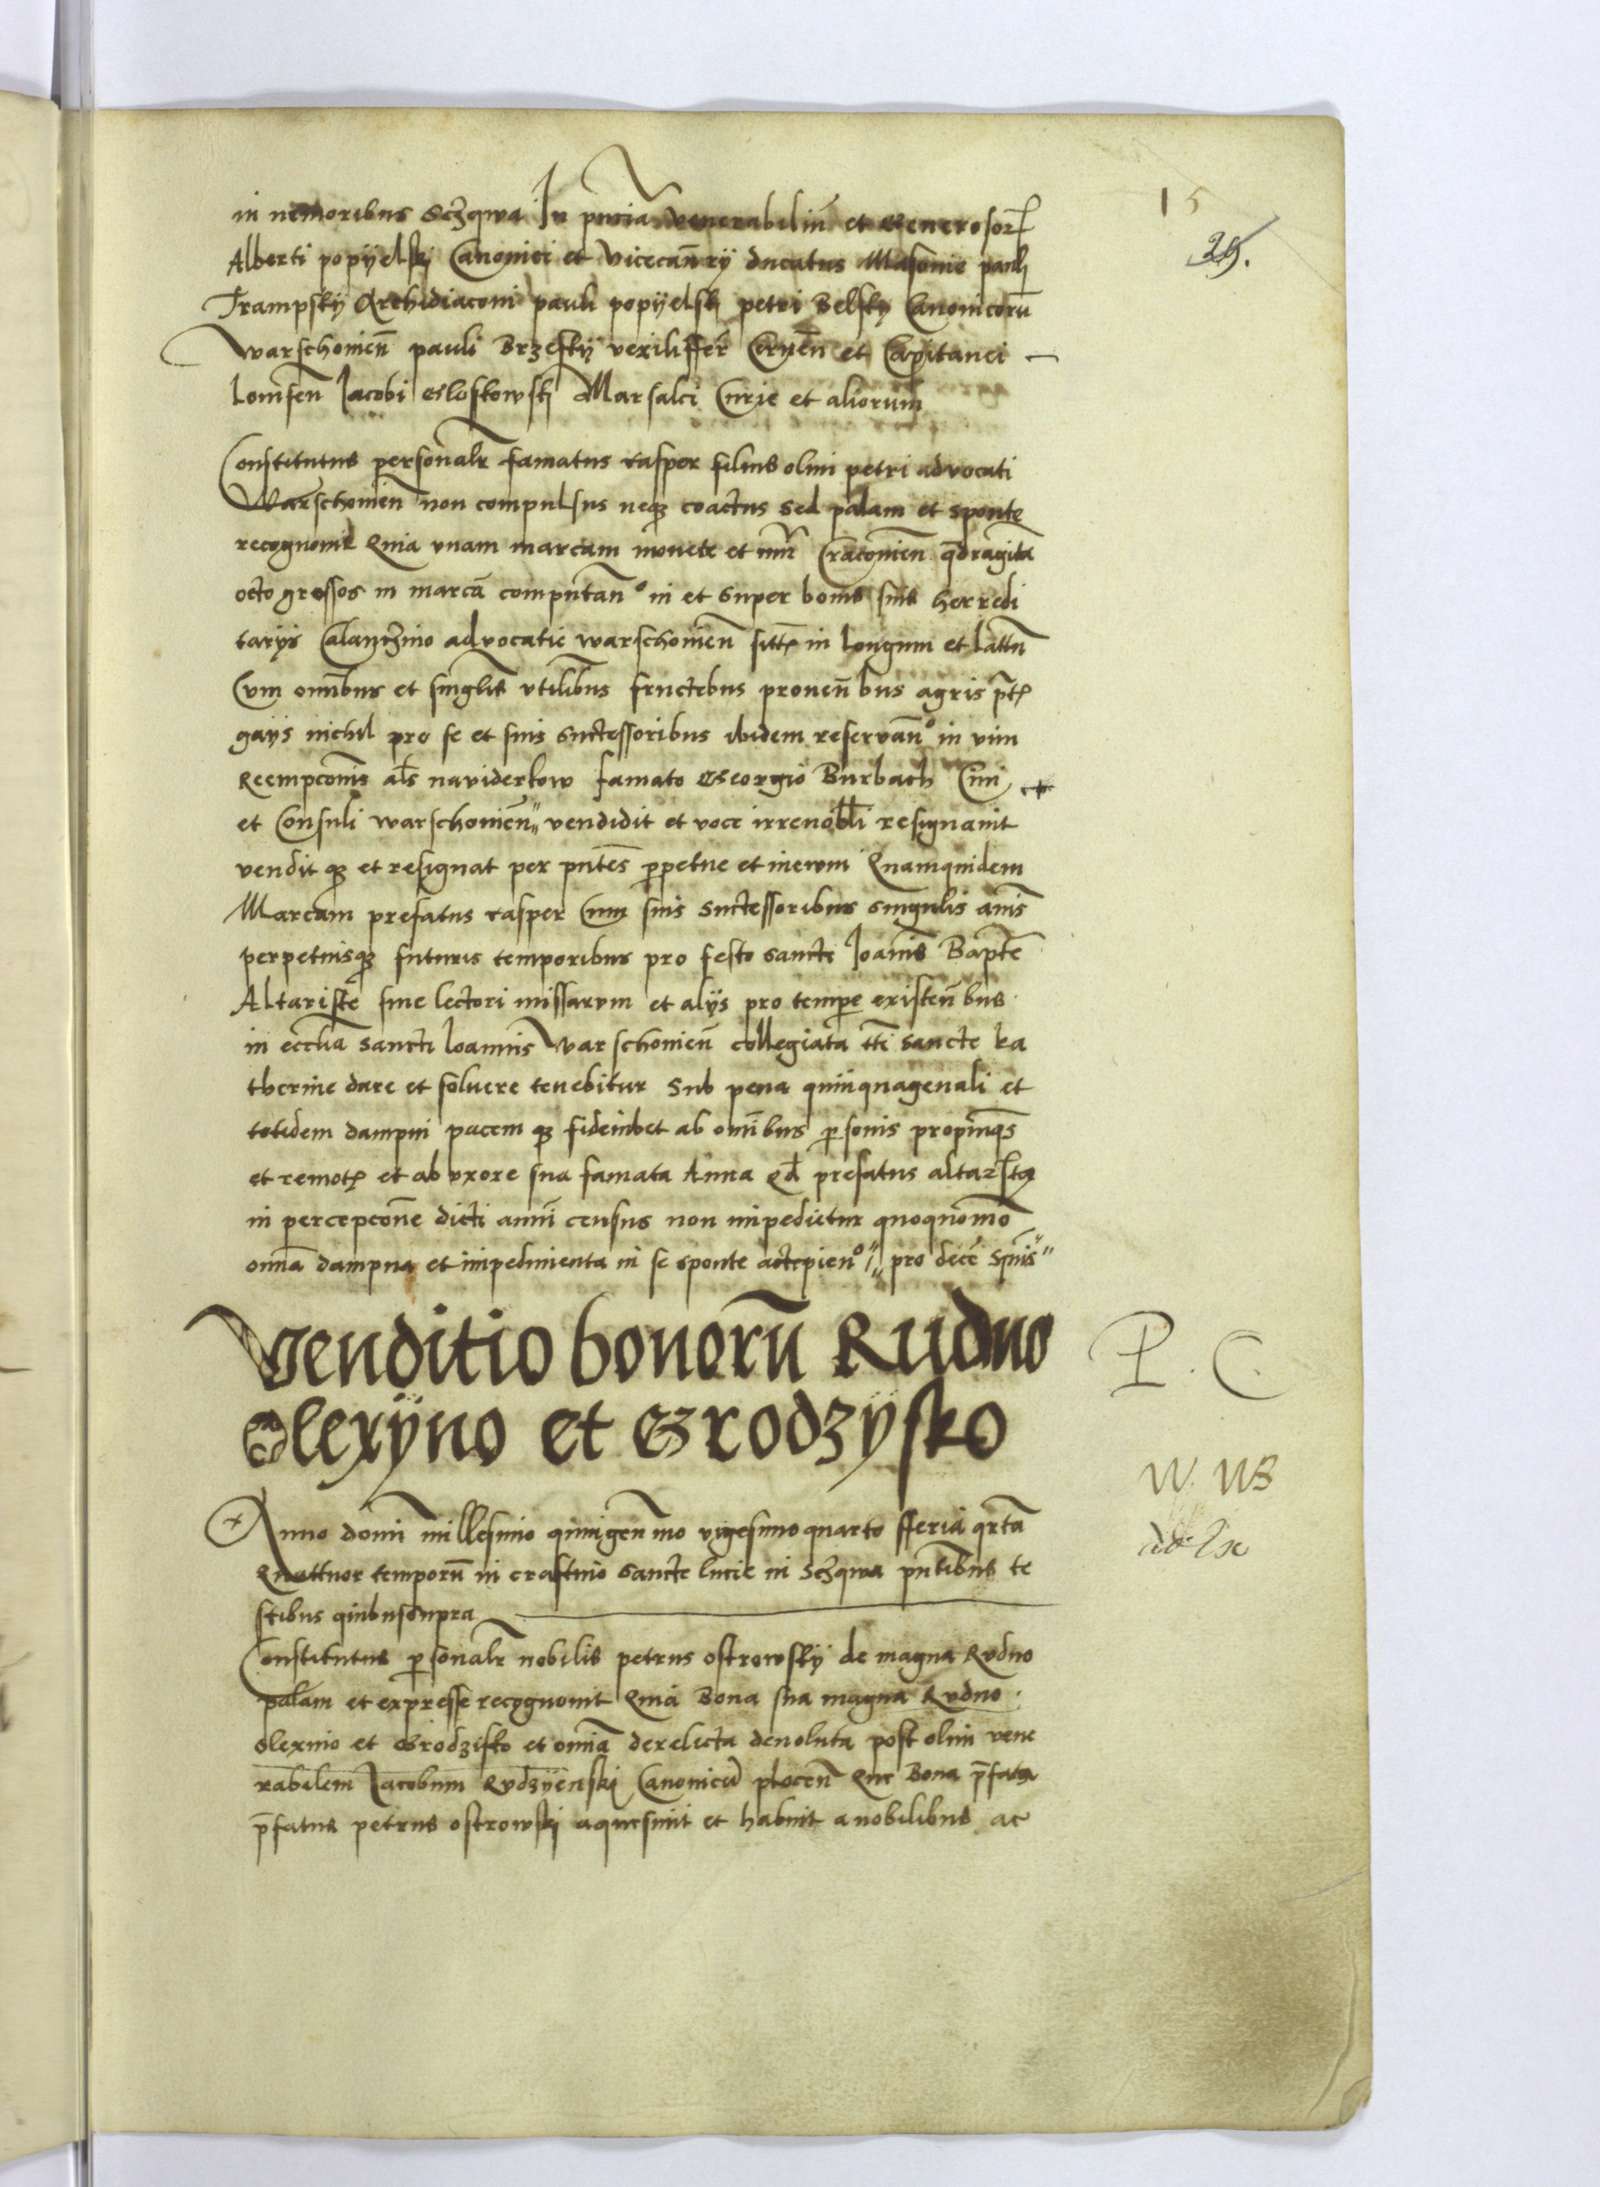 15
29.
in nemoribus Sczqwa In pñcia venerabiliũ et Generosorꝝ
Alberti popÿelskj Canonici et Vicecañrÿ ducatus Masouie pauli
Trampskÿ Archidiaconi pauli popÿelskj petri Belskÿ Canonicorũ
warschouieñ pauli Brzeskÿ vexilifferi Cernẽn et Capitanei
Lomsen Jacobi Gloskowskj Marsalci Curie et aliorum
Constitutus personalr famatus Casper filius olim petri advocati
Warschouien non compulsus neqꝫ coactus sed palam et sponte
recognouit Quia vnam marcam monete et nũi Cracouien qdragita
octo grossos in marcã computañº in et super bonis suis herredi
tarÿs advocatie warschouieñ sittꝭ in longum et lattũ
Cum omĩbus et singulis vtilibus fructebus prouenbus agris ptꝭ
gaÿs nichil pro se et suis Successoribus ibidem reservañº in vim
Reempcõnis als naviderkow famato Georgio Burbach Ciui
et Consuli warschouieñ vendidit et voce irreuobli resignauit
vendit qꝫ et resignat per pñtes perpetue et ineuum Quamquidem
Marcam prefatus Casper Cum suis Successoribus singulis anĩs
perpetuisqꝫ futuris temporibus pro festo sancti Joañis Bapte
Altariste siue lectori missarum et alÿs pro tempore existeñbus
in ecclia Sancti Joannis Warschouieñ collegiata tti Sancte ka
therine dare et soluere tenebitur Sub pena quinquagenali et
totidem dampni pacem qꝫ fideiubet ab omĩbus personis propinqs
et remotꝭ et ab vxore sua famata Anna Qd prefatus altarꝭta
in percepcone dicti annui census non inpedietur quoquomõ
omĩa dampna et impedimenta in se sponte accepienº pro decẽ
Venditio bonorũ Rudno
Olexÿno et Grodzÿsko
P. C.
Anno domĩ millesimo quingeñmo vigesimoquarto fferia qrta
Quattuor temporũ in crastino sancte lucie in Sczqwa pñtibus te
stibus quibussupra
Constitutus personalr nobilis petrus ostrowskÿ de magna Rudno
palam et expresse recognouit Quia Bona sua magna Rudno
olexino et Grodzisko et omĩa derelicta deuoluta post olim vene
rabilem Jacobum Rudzÿenski Canonicũ ploceñ Que Bona pfata
pfatus petrus ostrowskj aquesiuit et habuit a nobilibus ac